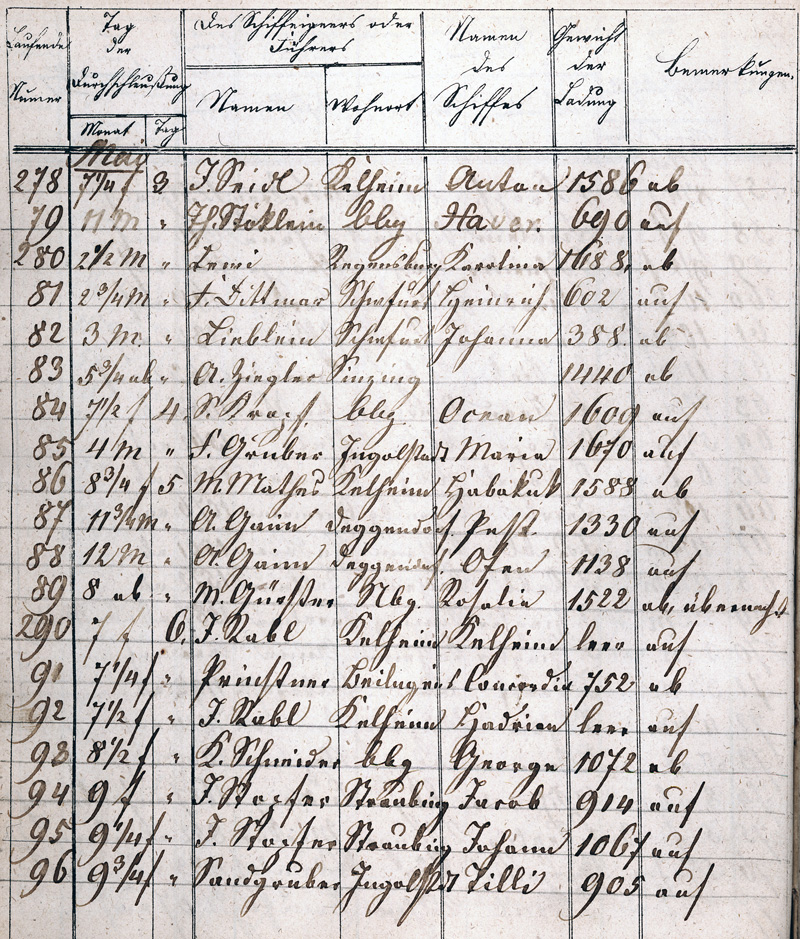 Laufende Numer | Tag der Durchschleußung | Des Schiffeigners oder Führers | Namen des Schiffes | Gewicht der Ladung | Bemerkungen.
Monat | Tag | Namen | Wohnort
May
278 7 1/4 f 3 J. Seidl Kelheim Anton 1586 ab
79 11 M " Stöklein bbg Xaver. 690 auf
280 2 1/2 M " Lewi Regensburg Karolina 1688. ab
81 2 3/4 M " F. Dittmar Schwfurt Heinrich 602 auf
82 3 M " Lieblein Schwfurt Johanna 388. ab
83 5 3/4 ab " A. Ziegler Sinzing 1440 ab
84 7 1/2 f 4. S. Kropf. bbg Ocean 1609 auf
85 4 M " F. Gruber Ingolstadt Maria 1670 auf
86 8 3/4 f 5 M. Mathes Kelheim Habakuk 1588 ab
87 11 3/4 M " A. Gaim Deggendorf. Pest 1330 auf
88 12 M " A. Gaim Deggendorf. Ofen 1138 auf
89 8 ab " M. Nbg. Rosalia 1522 ab, übernacht
290 7 f 6. J. Rabl Kelheim Kelheim leer auf
91 7 1/4 f " Prinstner Beilngries Concordia 752 ab
92 7 1/2 f " J. Rabl Kelheim Hadrian leer auf
93 8 1/2 f " K. Schneider bbg George 1072 ab
94 9 f " J. Stopfer Straubing Jacob 914 auf
95 9 1/4 f " J. Stopfer Straubing Johann 1067 auf
96 9 3/4 f " Sandgruber Ingolstdt Tilli 905 auf